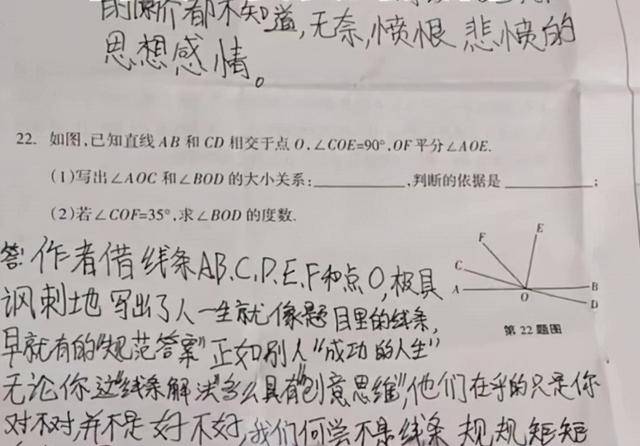 的原价都不知道,无奈,愤恨 悲愤的
思想感情。
22. 如图,已知直线 AB 和 CD 相交于点 O,∠COE=90°,OF 平分∠AOE.
(1)写出∠AOC 和∠BOD 的大小关系:____________,判断的依据是____________;
(2)若∠COF=35°,求∠BOD 的度数.
答:作者借线条AB、C、D、E、F和点O,极具
讽刺地 写出了人一生就像题目里的线条,
早就有的"规范答案"正如别人"成功的人生"
无论你这"线条解法"多么具有"创意思维",他们在乎的只是你
对不对,并不是 好不好,我们何尝不是线条 规规矩矩
F
E
C
A
O
B
D
第 22 题图